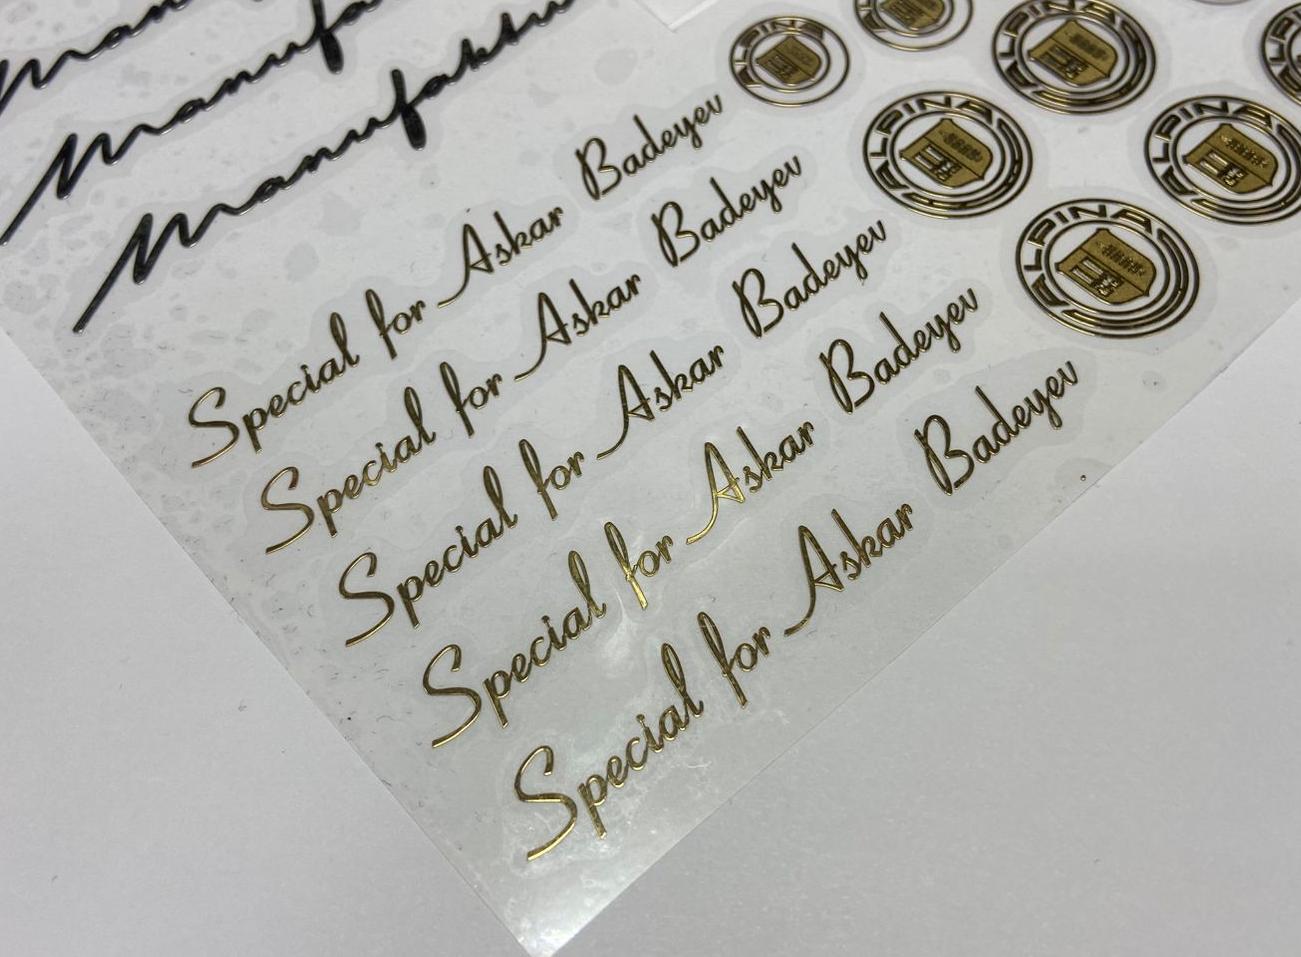 Manufaktu
Special for Askar Badeyev
Special for Askar Badeyev
Special for Askar Badeyev
Special for Askar Badeyev
Special for Askar Badeyev
ALPINA
ALPINA
ALPINA
ALPINA
ALPINA